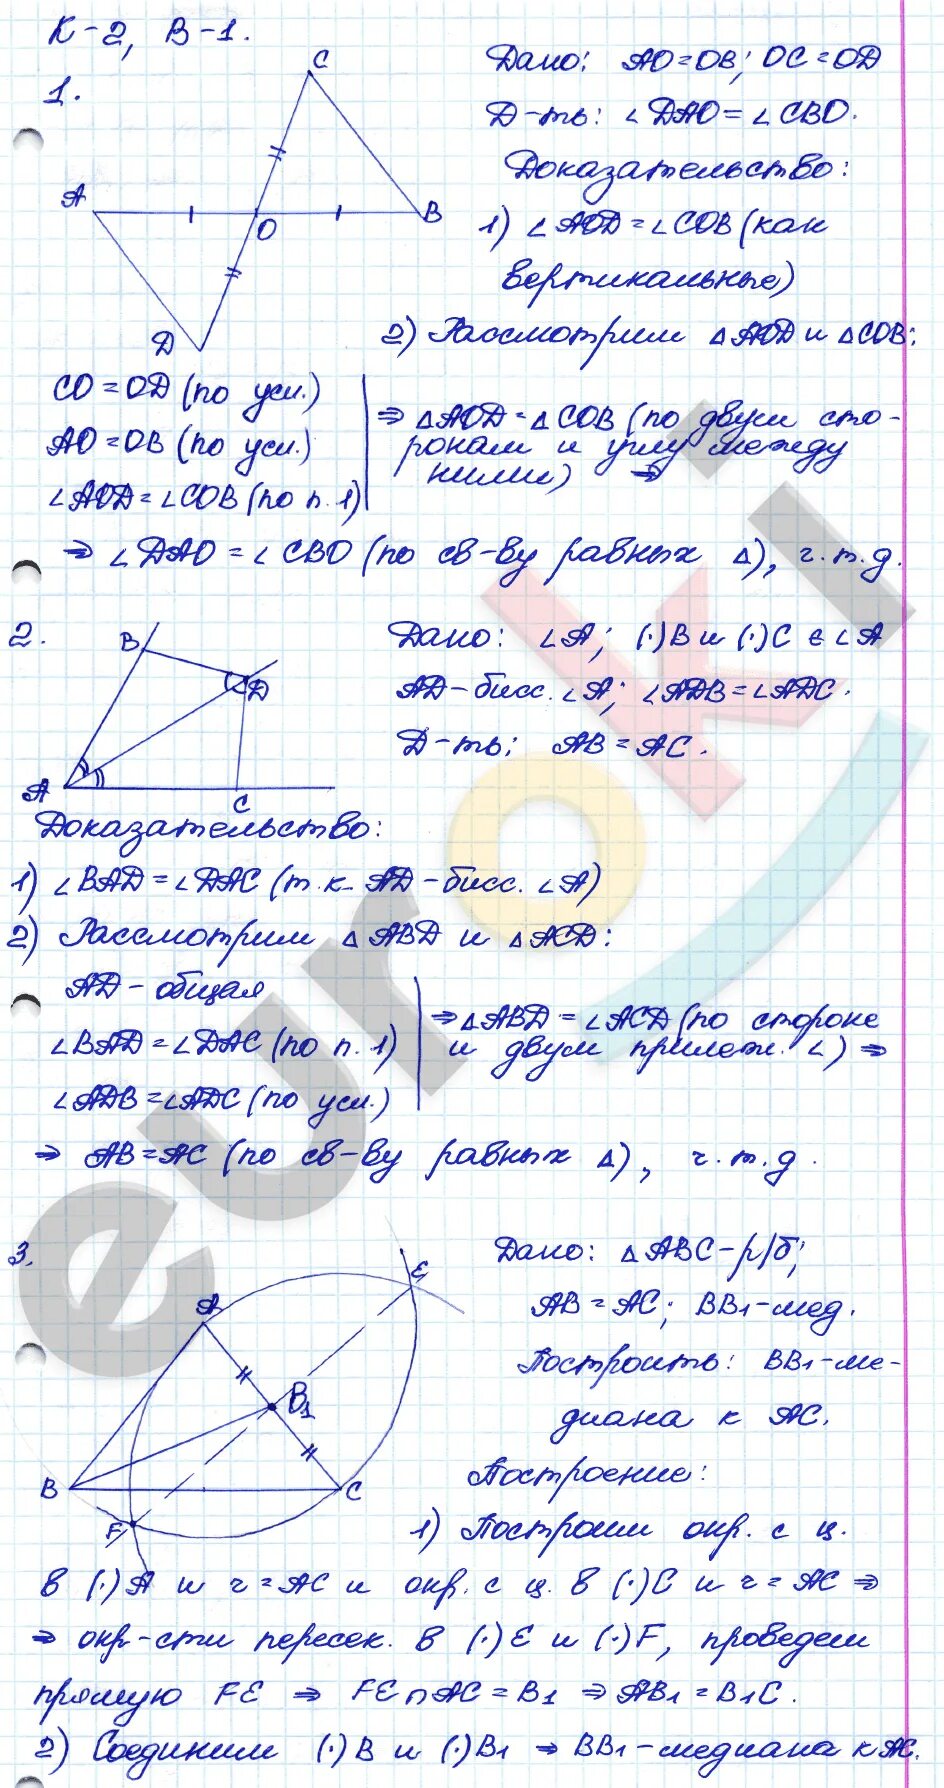 К-2, В-1.
1.
C
A
O
B
D
Дано: AO=OB; OC=OD
Д-ть: ∠DAO=∠CBO.
Доказательство:
1) ∠AOD=∠COB (как
вертикальные)
2) Рассмотрим △AOD и △COB:
CO=OD (по усл.)
AO=OB (по усл.)
∠AOD=∠COB (по п.1)
⇒ △AOD=△COB (по двум сто-
ронам и углу между
ними) ⇒
⇒ ∠DAO=∠CBO (по св-ву равных △), ч.т.д.
2.
B
D
A
C
Дано: ∠A; (·)B и (·)C ∈ ∠A
AD-бисс. ∠A; ∠ADB=∠ADC.
Д-ть: AB=AC.
Доказательство:
1) ∠BAD=∠DAC (т.к. AD-бисс. ∠A)
2) Рассмотрим △ABD и △ACD:
AD-общая
∠BAD=∠DAC (по п.1)
∠ADB=∠ADC (по усл.)
⇒ △ABD=∠ACD (по стороне
и двум прилеж. ∠) ⇒
⇒ AB=AC (по св-ву равных △), ч.т.д.
3.
E
A
B1
B
C
F
Дано: △ABC-р/б;
AB=AC; BB1-мед.
Построить: BB1-ме-
диана к AC.
Построение:
1) Построим окр. с ц.
в (·)A и r=AC и окр. с ц. в (·)C и r=AC ⇒
⇒ окр-сти пересек. в (·)E и (·)F, проведем
прямую FE ⇒ FE∩AC=B1 ⇒ AB1=B1C.
2) Соединим (·)B и (·)B1 ⇒ BB1-медиана к AC.
euroki